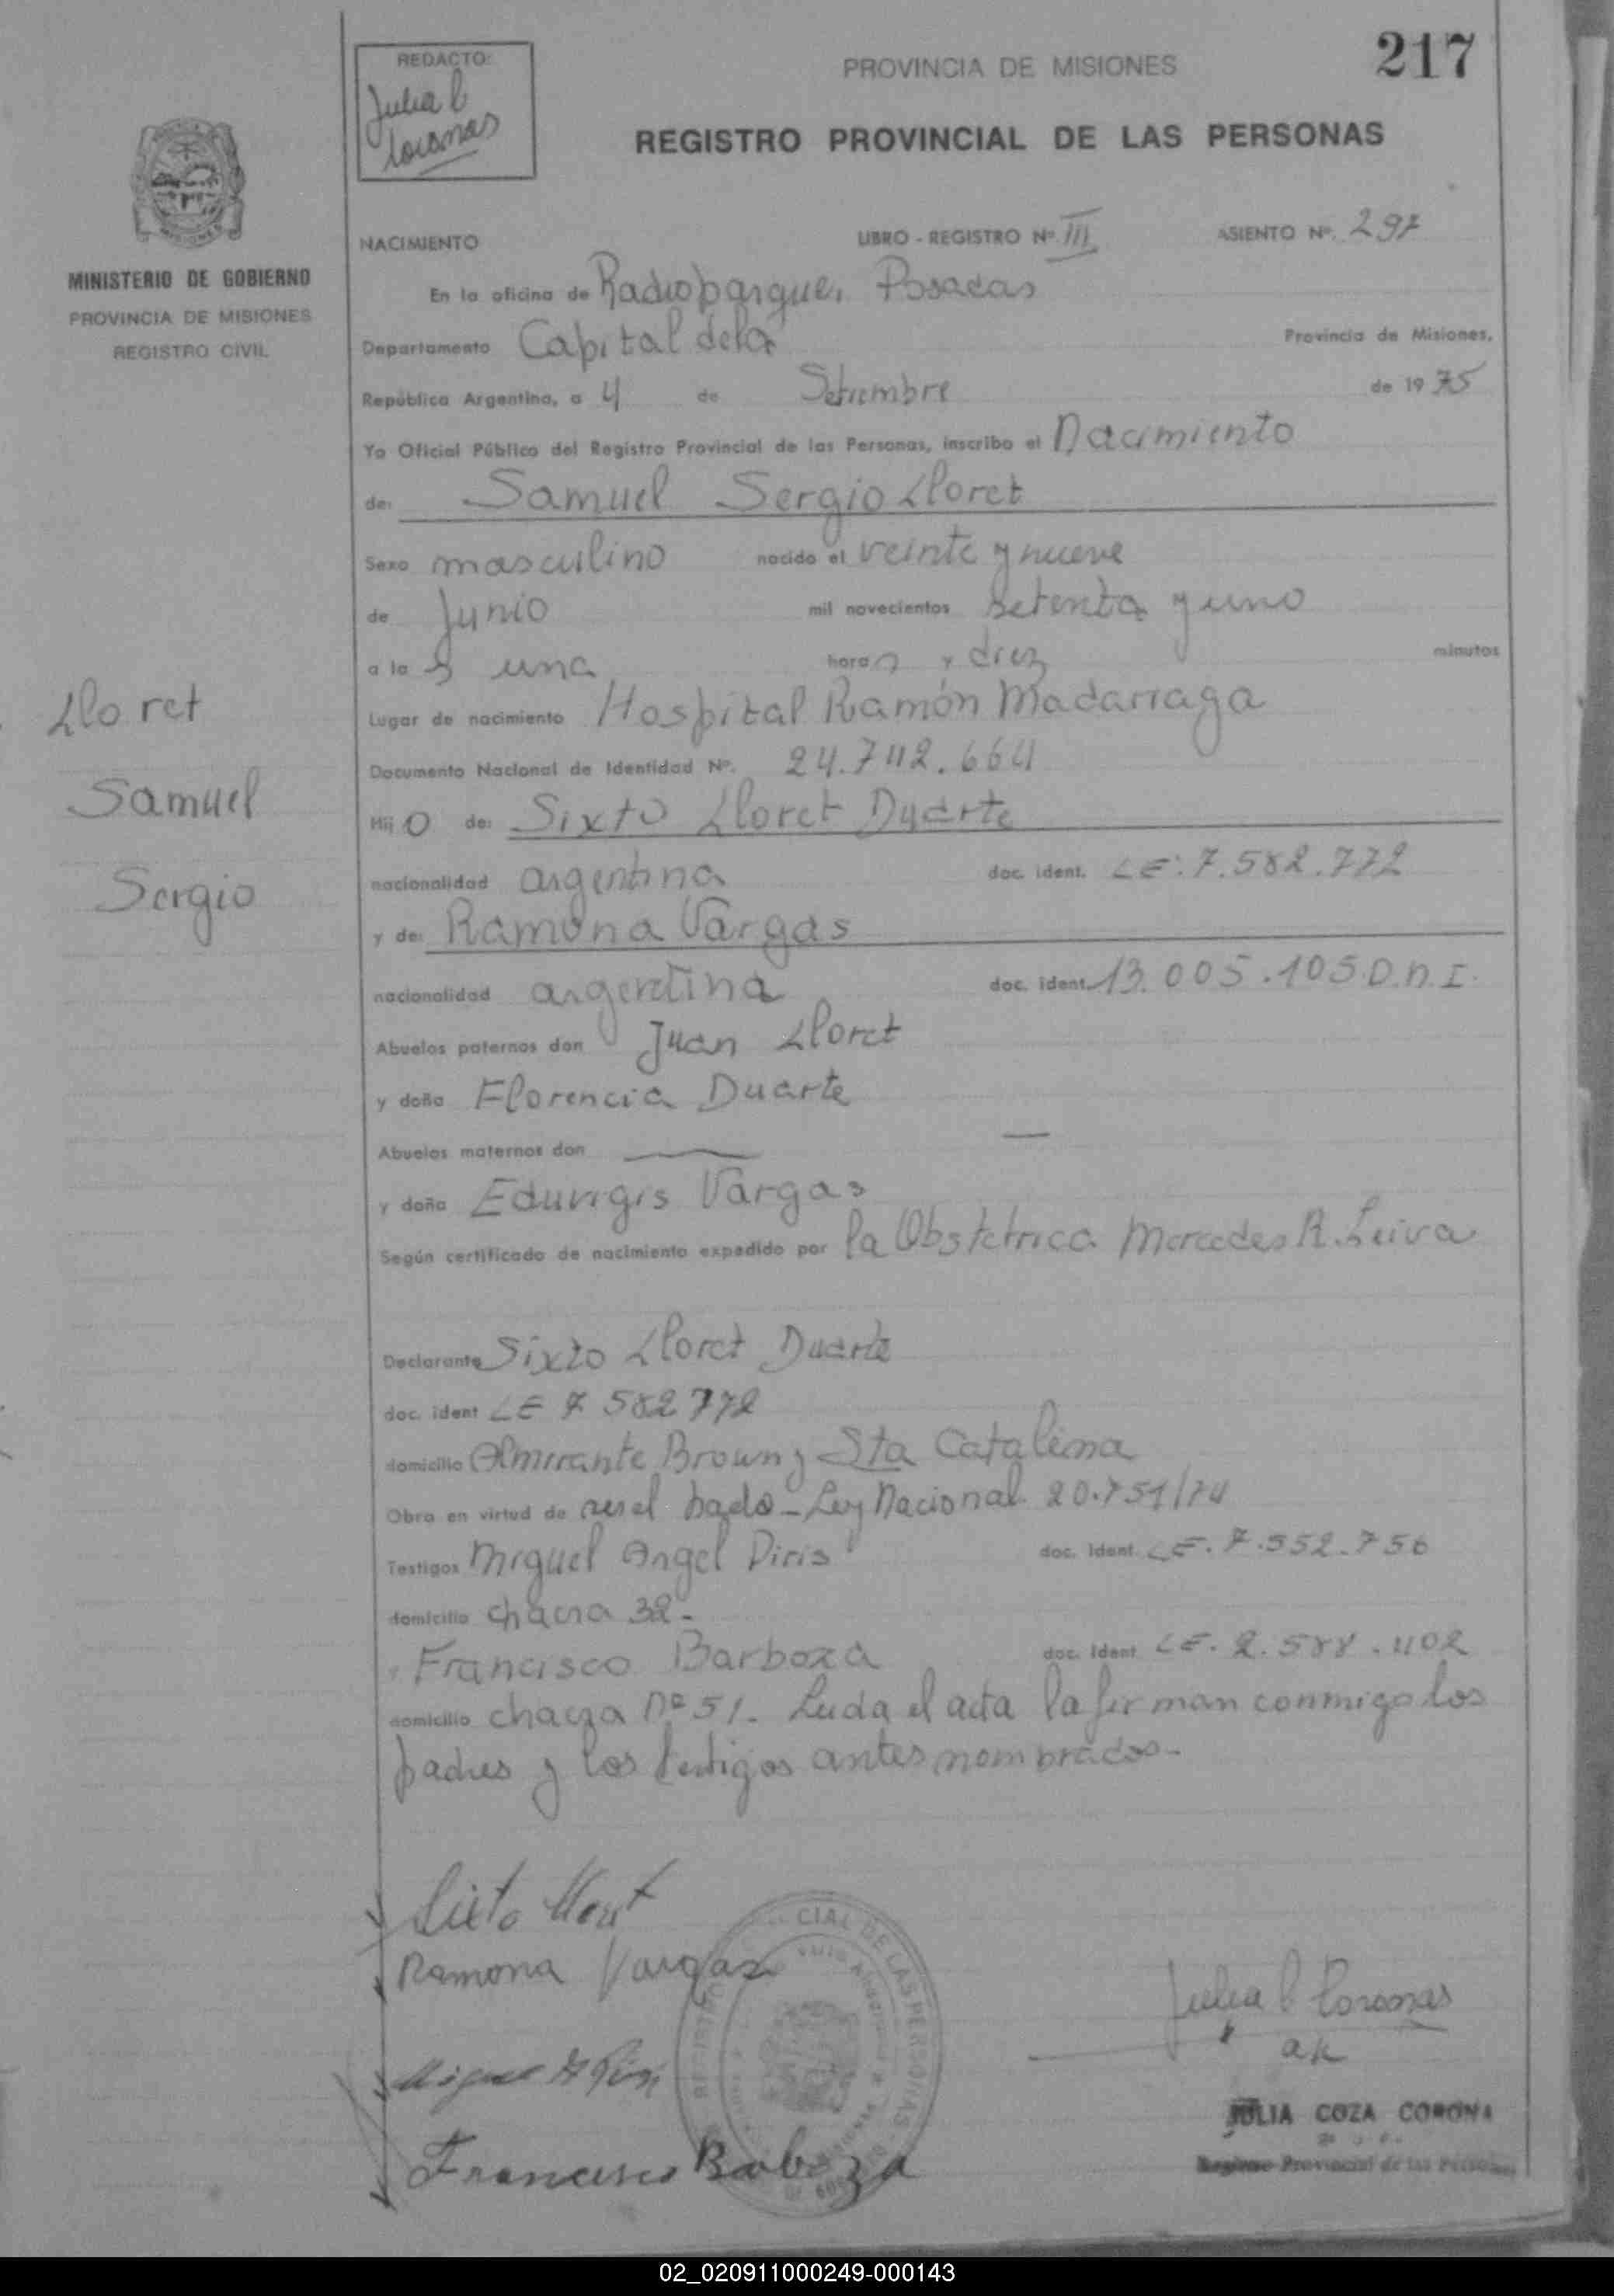 217
REDACTO:
Julia C
Coronas
PROVINCIA DE MISIONES
REGISTRO PROVINCIAL DE LAS PERSONAS
MINISTERIO DE GOBIERNO
PROVINCIA DE MISIONES
REGISTRO CIVIL
NACIMIENTO LIBRO - REGISTRO Nº. III ASIENTO Nº. 297
En la oficina de Radioparque, Posadas
Departamento Capital de la Provincia de Misiones,
República Argentina, a 4 de Setiembre de 1975
Yo Oficial Público del Registro Provincial de las Personas, inscribo el Nacimiento
de: Samuel Sergio Lloret
Sexo masculino nacido el veinte y nueve
de Junio mil novecientos setenta y uno
a la s una hora s y diez minutos
Lloret
Samuel
Sergio
Lugar de nacimiento Hospital Ramón Madarriaga
Documento Nacional de Identidad Nº. 24.742.664
Hij o de: Sixto Lloret Duarte
nacionalidad argentina doc. ident. LE: 7.582.772
y de: Ramona Vargas
nacionalidad argentina doc. ident. 13.005.105 D.N.I.
Abuelos paternos don Juan Lloret
y doña Florencia Duarte
Abuelos maternos don —
y doña Eduvigis Vargas
Según certificado de nacimiento expedido por la Obstetrica Mercedes R. Leiva
Declarante Sixto Lloret Duarte
doc. ident LE 7 582 772
domicilio Almirante Brown y Sta Catalina
Obra en virtud de ser el padre - Ley Nacional 20.751/74
Testigos Miguel Angel Piris doc. Ident. LE. 7.552.756
domicilio chacra 32-
y Francisco Barboza doc. Ident LE. 2.588.402
domicilio chacra Nº 51. Leida el acta la firman conmigo los
padres y los testigos antes nombrados-
Sixto Lloret
Ramona Vargas
Julia C Coronas
Miguel A Piris
Francisco Barboza
JULIA COZA CORONA
Registro Provincial de las Personas
02_020911000249-000143